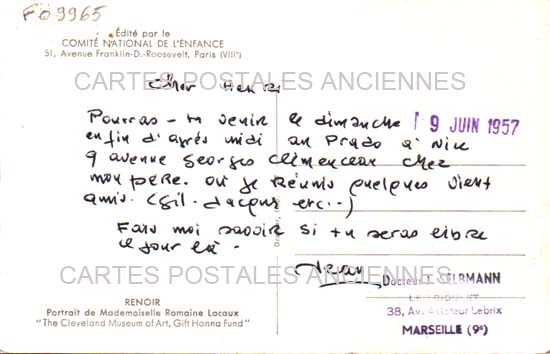 FO 9965
Édité par le
COMITÉ NATIONAL DE L'ENFANCE
51, Avenue Franklin-D.-Roosevelt, Paris (VIIIᵉ)
CARTES POSTALES ANCIENNES
Cher Henri
Pourras-tu venir le dimanche 9 JUIN 1957
enfin d'après midi au Prado à Nice
9 avenue Georges Clémenceau chez
mon père. où je réunis quelques vieux
amis. (Gil. Jacques etc..)
Fais moi savoir si tu seras libre
ce jour là.
Jean
CARTES POSTALES ANCIENNES
Docteur J. RMANN
38, Av. Aviateur Lebrix
MARSEILLE (9ᵉ)
RENOIR
Portrait de Mademoiselle Romaine Lacaux
"The Cleveland Museum of Art, Gift Hanna Fund"